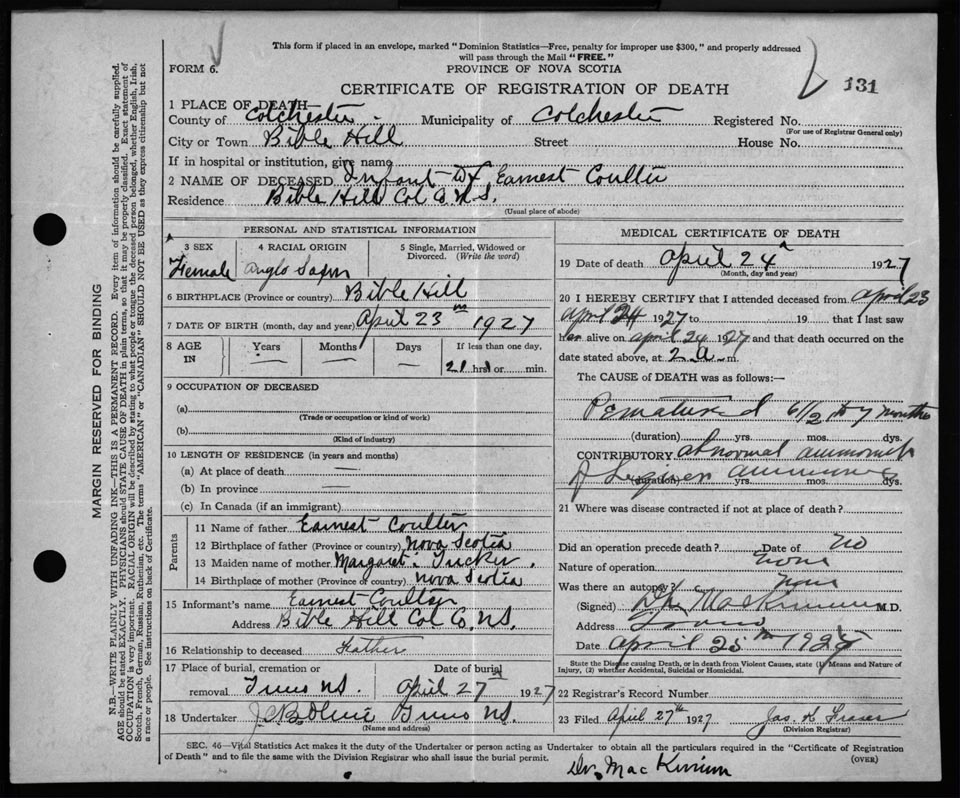 This form if placed in an envelope, marked " Dominion Statistics—Free, penalty for improper use $300, " and properly addressed
will pass through the Mail "FREE."
FORM 6.
PROVINCE OF NOVA SCOTIA
131
CERTIFICATE OF REGISTRATION OF DEATH
1 PLACE OF DEATH—
County of Colchester. Municipality of Colchester Registered No.
(For use of Registrar General only)
City or Town Bible Hill Street House No.
If in hospital or institution, give name
2 NAME OF DECEASED Infant of Earnest Coulter
Residence Bible Hill Col Co. N.S.
(Usual place of abode)
PERSONAL AND STATISTICAL INFORMATION
3 SEX 4 RACIAL ORIGIN 5 Single, Married, Widowed or
Divorced. (Write the word)
Female Anglo Saxon
6 BIRTHPLACE (Province or country) Bible Hill
7 DATE OF BIRTH (month, day and year) April 23 1927
8 AGE IN Years Months Days If less than one day,
— — — 21 hrs or min.
9 OCCUPATION OF DECEASED
(a)
(Trade or occupation or kind of work)
(b)
(Kind of industry)
10 LENGTH OF RESIDENCE (in years and months)
(a) At place of death —
(b) In province —
(c) In Canada (if an immigrant)
Parents
11 Name of father Earnest Coulter
12 Birthplace of father (Province or country) Nova Scotia
13 Maiden name of mother Margaret Tucker.
14 Birthplace of mother (Province or country) Nova Scotia
15 Informant's name Earnest Coulter
Address Bible Hill Col Co. N.S.
16 Relationship to deceased Father
17 Place of burial, cremation or Date of burial
removal Truro N.S. April 27 1927
18 Undertaker Truro N.S.
(Name and address)
MEDICAL CERTIFICATE OF DEATH
19 Date of death April 24 1927
(Month, day and year)
20 I HEREBY CERTIFY that I attended deceased from April 23
April 24 1927 to 19 that I last saw
alive on April 24 1927 and that death occurred on the
date stated above, at 2 a. m.
The CAUSE OF DEATH was as follows:—
Prematured 6 1/2 to 7 months
(duration) yrs. mos. dys.
CONTRIBUTORY abnormal
(duration) yrs. mos. dys.
21 Where was disease contracted if not at place of death?
Did an operation precede death? Date of no
Nature of operation none
Was there an autopsy? none
(Signed) MacKinnon M.D.
Address Truro
Date April 25th 1927
State the Disease causing Death, or in death from Violent Causes, state (1) Means and Nature of
Injury, (2) whether Accidental, Suicidal or Homicidal.
22 Registrar's Record Number
23 Filed April 27th 1927 Jas. H Fraser
(Division Registrar)
SEC. 46—Vital Statistics Act makes it the duty of the Undertaker or person acting as Undertaker to obtain all the particulars required in the "Certificate of Registration
of Death" and to file the same with the Division Registrar who shall issue the burial permit.
(OVER)
Dr. MacKinnon
MARGIN RESERVED FOR BINDING
N.B.—WRITE PLAINLY WITH UNFADING INK—THIS IS A PERMANENT RECORD. Every item of information should be carefully supplied.
AGE should be stated EXACTLY. PHYSICIANS should STATE CAUSE OF DEATH in plain terms, so that it may be properly classified. Exact statement of
OCCUPATION is very important. RACIAL ORIGIN will be described by stating to what people or tongue the deceased person belonged, whether English, Irish,
Scotch, French, German, Russian, Ruthenian, etc. The terms "AMERICAN" or "CANADIAN" SHOULD NOT BE USED as they express citizenship but not
a race or people. See instructions on back of Certificate.